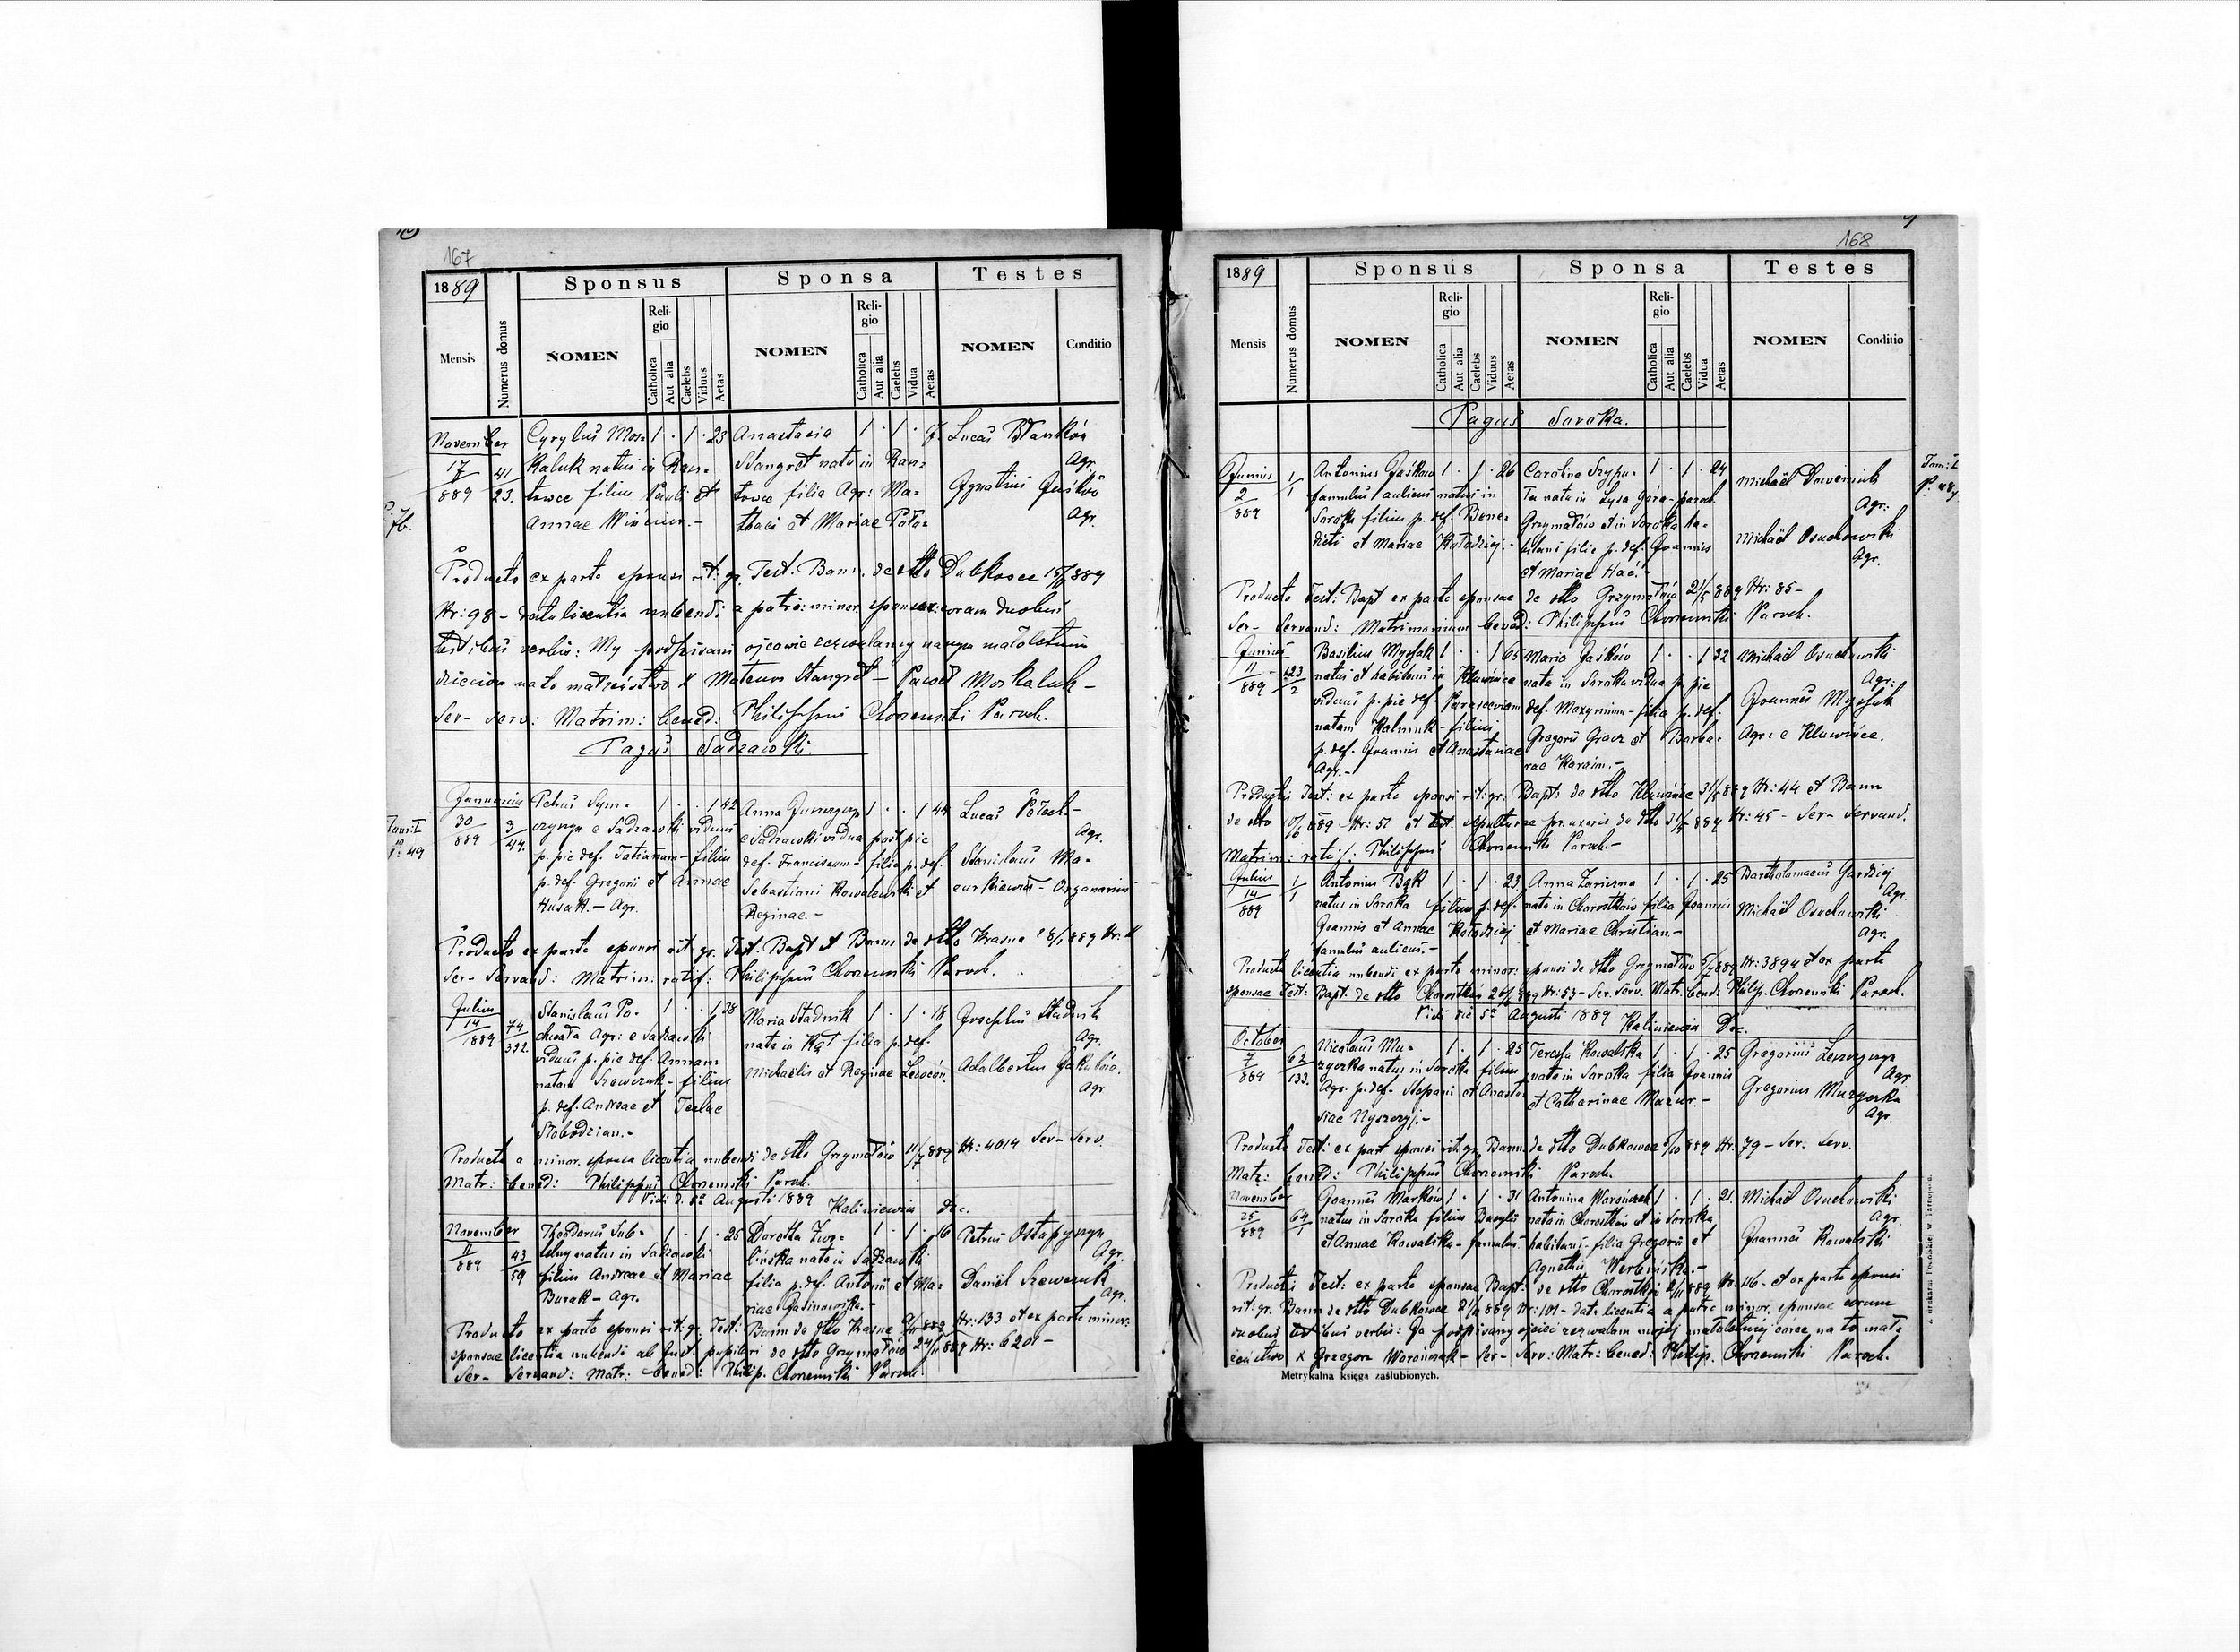 167
1889
Sponsus
Sponsa
Testes
Mensis
Numerus domus
NOMEN
Religio
Catholica
Aut alia
Caelebs
Viduus
Aetas
NOMEN
Religio
Catholica
Aut alia
Caelebs
Vidua
Aetas
NOMEN
Conditio
November
17/889
41/23.
Cyrylus Mos=
kaluk natus in Ras=
towce filius Pauli et
Annae
1 . 1 . 23
Anastasia
Stangret nata in Ras=
towce filia Agr: Ma=
thaei et Mariae
1 . 1 .
Lucas
Agr.
Ignatius
Agr.
Producto ex parte sponsi rit: gr. Test. Bann. de dtto Dubkowce 889
Nr: 98 – data licentia nubendi a patri: minor. sponsor: coram duobus
testibus verbis: My podpisani ojcowie zezwalamy naszym małoletnim
dzieciom na to małżeństwo X Mateusz Stangret – Paweł Moskaluk –
Ser– serv: Matrim: bened: Philippus Paroch.
Pagus Sadzawki.
Tom: I
P: 49
Januarius
30/889
3/44.
Petrus Sym=
czyszyn e Sadzawki viduus
p. pie def. Tatiannam – filius
p. def. Gregorii et Annae
Husak. – Agr.
1 . . 1 42
Anna
e Sadzawki vidua post pie
def. Franciscum – filia p. def.
Sebastiani Kowalewski et
Reginae. –
1 . . 1 44
Lucas
Agr.
Stanislaus Ma=
curkiewicz – Organarius
Producto ex parte sponsi rit. gr. Test. Bapt et Bann de dtto Krasne 28/1 889 Nr: 11
Ser– Servand: Matrim: ratif: Philippus Paroch.
Julius
14/1889
74/332.
Stanislaus Po=
chwała Agr: e Sadzawki
viduus p. pie def. Annam
natam Szewczuk – filius
p. def. Andreae et Teclae
Słobodzian. –
1 . . 1 38
Maria Stadnik
nata in Kąt filia p. def.
Michaelis et Reginae
1 . 1 . 18
Josephus Stadnik
Agr.
Adalbertus Jakubów.
Agr
Producta a minor. sponsa licentia nubendi de dtto Grzymałów 11/7 889 Nr: 4014 Ser– Serv.
Matr: bened: Philippus Paroch.
Vidi d. 5a Augusti 1889 Kaliniewicz Dec.
November
11/889
43/59
Theodorus Sub=
telny natus in Sadzawki
filius Andreae et Mariae
Burak – Agr.
1 . 1 . 25
Dorothea
nata in Sadzawki
filia p. def. Antonii et Ma=
riae
1 . 1 16
Petrus Ostapyszyn
Agr.
Daniel Szewczuk
Agr.
Producto ex parte sponsi rit: gr. Test: Bann de dtto Krasne 889 Nr: 133 et ex parte minor:
sponsae licentia nubendi ab Inst. pupillari de dtto Grzymałów 889 Nr: 6201 –
Ser– Servand: Matr: bened: Philip. Paroch.
168
1889
Sponsus
Sponsa
Testes
Mensis
Numerus domus
NOMEN
Religio
Catholica
Aut alia
Caelebs
Viduus
Aetas
NOMEN
Religio
Catholica
Aut alia
Caelebs
Vidua
Aetas
NOMEN
Conditio
Pagus Soroka.
Junius
2/889
1/1
Antonius Jaśków
famulus aulicus natus in
Soroka filius p. def. Bene=
dicti et Mariae Kołodziej –
1 . 1 . 26
Carolina
nata in Łysa Góra – paroch
Grzymałów et in Soroka ha=
bitans filia p. def. Joannis
et Mariae
1 . 1 . 24
Michaël
Agr:
Michaël Osuchowski
Agr.
Tom: I
Producto Test: Bapt ex parte sponsae de dtto Grzymałów 2/5 889 Nr: 85 –
Ser– Servand: Matrimonium bened: Philippus Paroch.
Junius
11/889
123/2
Basilius Myszak
natus et habitans in Kluwińce
viduus p. pie def. Parasceviam
natam Kalmuk – filius
p. def. Joannis et Anastasiae
Agr. –
1 . . 1 65
Maria Jaśków
nata in Soroka vidua p. pie
def. Maxymum – filia p. def.
Gregorii Gracz et Barba=
rae Karaim. –
1 . . 1 32
Michaël Osuchowski
Agr:
Joannes Myszak
Agr: e Kluwińce.
Productis Test: ex parte sponsi rit: gr: Bapt: de dtto Kluwińce 31/5 889 Nr: 44 et Bann
de dtto 10/6 889 – Nr: 51 et test. sepulturae pr. uxoris de dtto 31/5 889 Nr: 45 – Ser– Servand.
Matrim: ratif: Philippus Paroch. –
Julius
14/889
1/1
Antonius Bąk
natus in Soroka filius p. def.
Joannis et Annae Kołodziej
famulus aulicus. –
1 . 1 . 23
Anna
nata in Chorostków filia Joannis
et Mariae Christian. –
1 . 1 . 25
Bartholomaeus Gardziej
Agr.
Michaël Osuchowski
Agr.
Producta licentia nubendi ex parte minor: sponsi de dtto Grzymałów 5/7 889 Nr: 3894 et ex parte
sponsae Test: Bapt. de dtto Chorostków 889 Nr: 53 – Ser. Serv. Matr: bened: Philip. Paroch.
Vidi die 5a Augusti 1889 Kaliniewicz Dec.
October
7/889
62/133.
Nicolaus Mu=
zyczka natus in Soroka filius
Agr. p. def. Stepani et Anasta=
siae
1 . 1 . 25
Teresa Kowalska
nata in Soroka filia Joannis
et Catharinae Mazur. –
1 . 1 . 25
Gregorius
Agr
Gregorius Muzyczka
Agr.
Producto Test: ex part sponsi rit: gr. Bann de dtto Dubkowce 5/10 889 Nr. 79 – Ser: Serv.
Matr: bened: Philippus Paroch.
November
25/889
64/1
Joannes Marków
natus in Soroka filius Basylii
et Annae Kowalska – famulus.
1 . 1 . 31
Antonina Worończak
nata in Chorostków et in Soroka
habitans – filia Gregorii et
Agnetis
1 . 1 . 21.
Michaël Osuchowski
Agr.
Joannes Kowalski
Productis Test: ex parte sponsae Bapt: de dtto Chorostków 2/11 889 Nr. 116 – et ex parte sponsi
rit: gr. Bann de dtto Dubkowce 889 Nr: 101 – data licentia a patre minor. sponsae coram
duobus testibus verbis: Ja podpisany ojciec zezwalam mojej małoletniej córce na to mał=
żeństwo X Grzegorz Worończak – Ser– Serv: Matr: bened: Philip. Paroch.
Metrykalna księga zaślubionych.